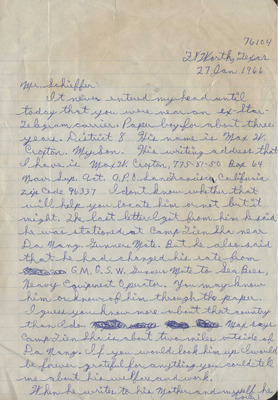 76104
Ft Worth, Texas
27 Jan 1966
Mr. Schieffer
It never entered my head until
today that you were near an ex-Star-
Telegram carrier. Paper boy for about three
years. District 8 His name is Max W.
Croxton, My son. His writing address that
I have is Max W Croxton, 775-81-50 Box 64
Nav Sup. Act. A.P.O. San Francisco, California
zip Code 96337 I dont know whether that
will help you locate him or not but it
might. The last letter I got from him he said
he was stationed at Camp Tien Sha near
Da Nang. Gunners Mate. But he also said
that he had changed his rate from
G.M. Gunners Mate to Sea Bees,
Heavy Equipment Operator. You may know
him or know of him through the paper.
I guess you know more about that country
than I do Max says
Camp Tien Sha is about two miles outside of
Da Nang. If you would look him up I would
be forever grateful for anything you could tell
me about his welfare and work.
When he writes to his Mother and myself he